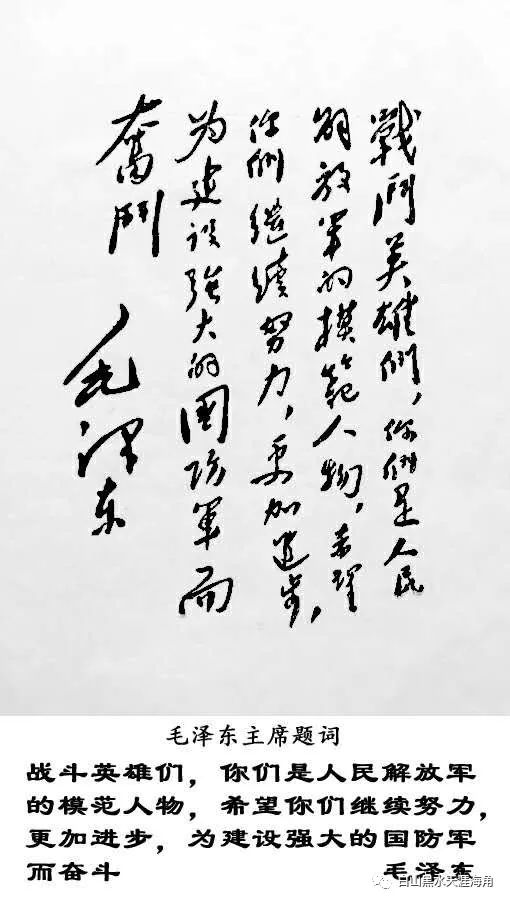 戰鬥英雄们，你们是人民
解放军的模范人物，希望
你们继续努力，更加进步，
为建设强大的国防军而
奮鬥
毛泽东
毛泽东主席题词
战斗英雄们，你们是人民解放军
的模范人物，希望你们继续努力，
更加进步，为建设强大的国防军
而奋斗 毛泽东
白山黑水天涯海角